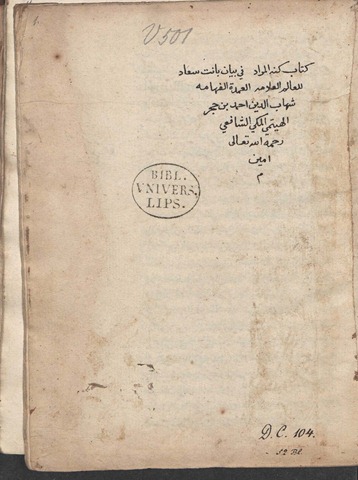 V501
كتاب كنه المراد في بيان بانت سعاد
للعالم العلامه العمدة الفهامه
شهاب الدين احمد بن حجر
الهيتمي المكي الشافعي
رحمه الله تعالى
امين
م
BIBL.
VNIVERS.
LIPS.
D.C. 104.
52 Bl.